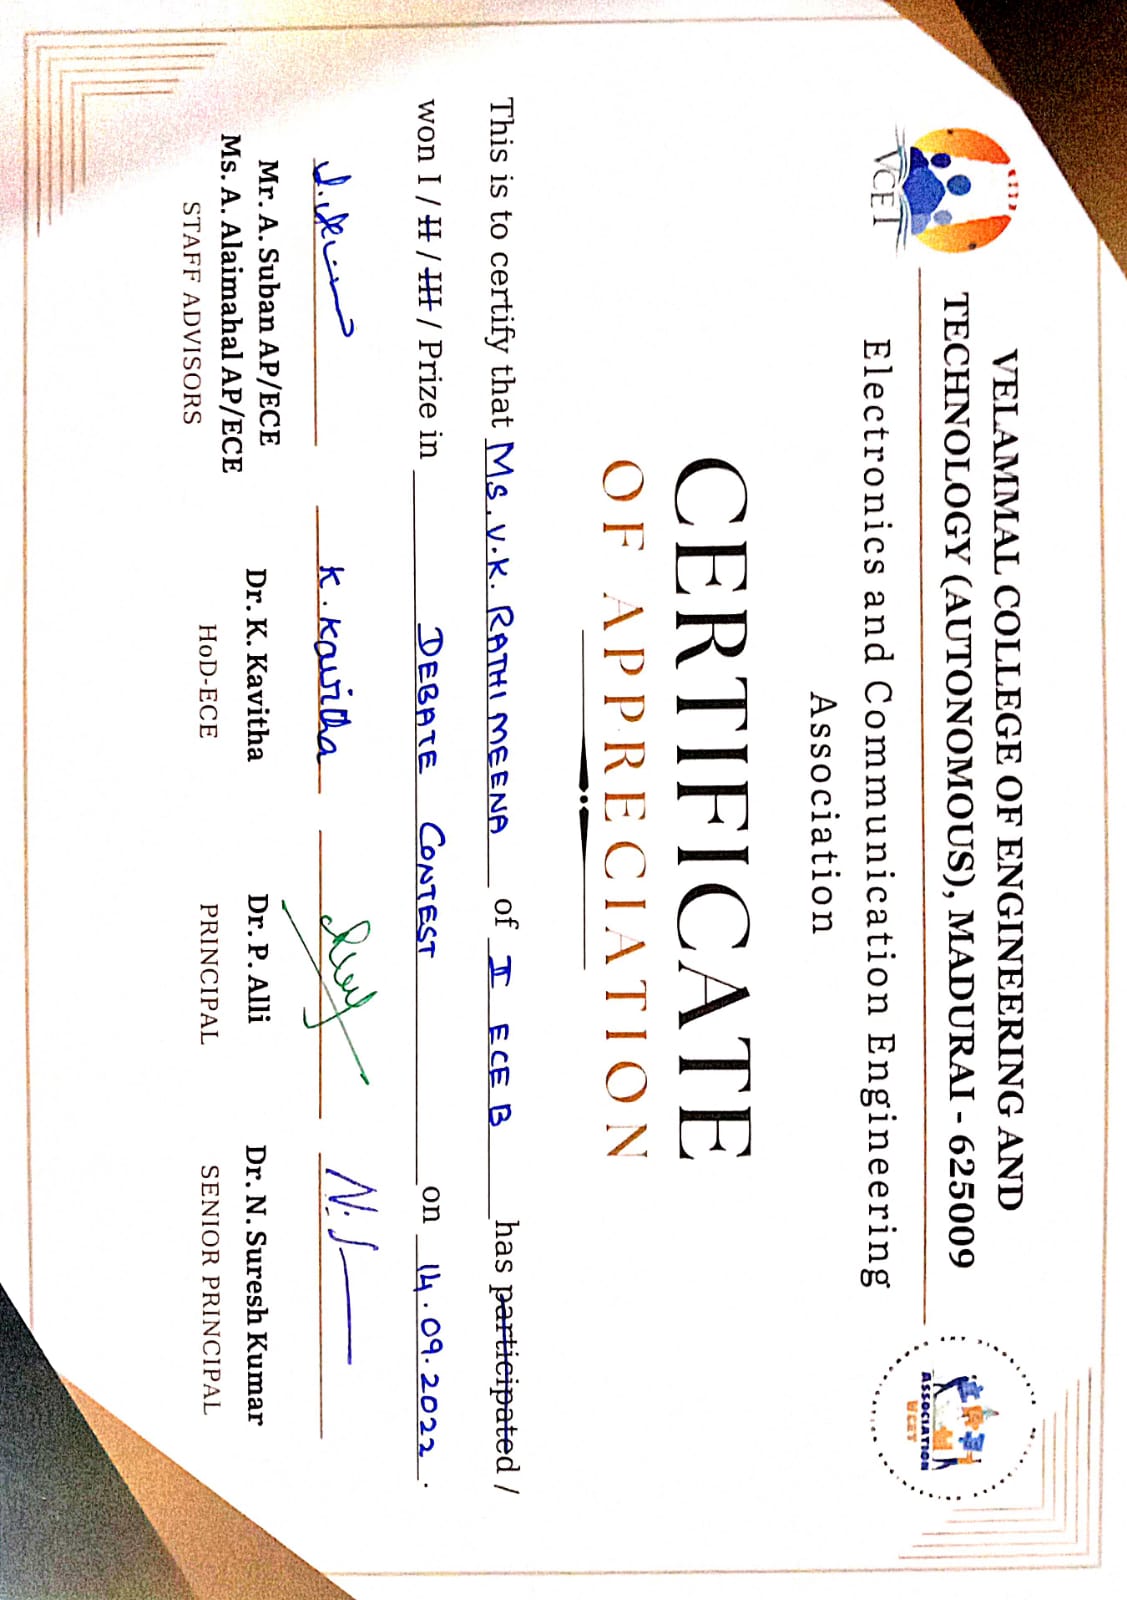 VELAMMAL COLLEGE OF ENGINEERING AND
TECHNOLOGY (AUTONOMOUS), MADURAI - 625009
VCET
ASSOCIATION
VCET
Electronics and Communication Engineering
Association
CERTIFICATE
OF APPRECIATION
This is to certify that Ms. V.K. RATHI MEENA of II ECE B has participated /
won I / II / III / Prize in DEBATE CONTEST on 14.09.2022.
K. Kavitha
N. S
Mr. A. Suban AP/ECE
Ms. A. Alaimahal AP/ECE
STAFF ADVISORS
Dr. K. Kavitha
HoD-ECE
Dr. P. Alli
PRINCIPAL
Dr. N. Suresh Kumar
SENIOR PRINCIPAL